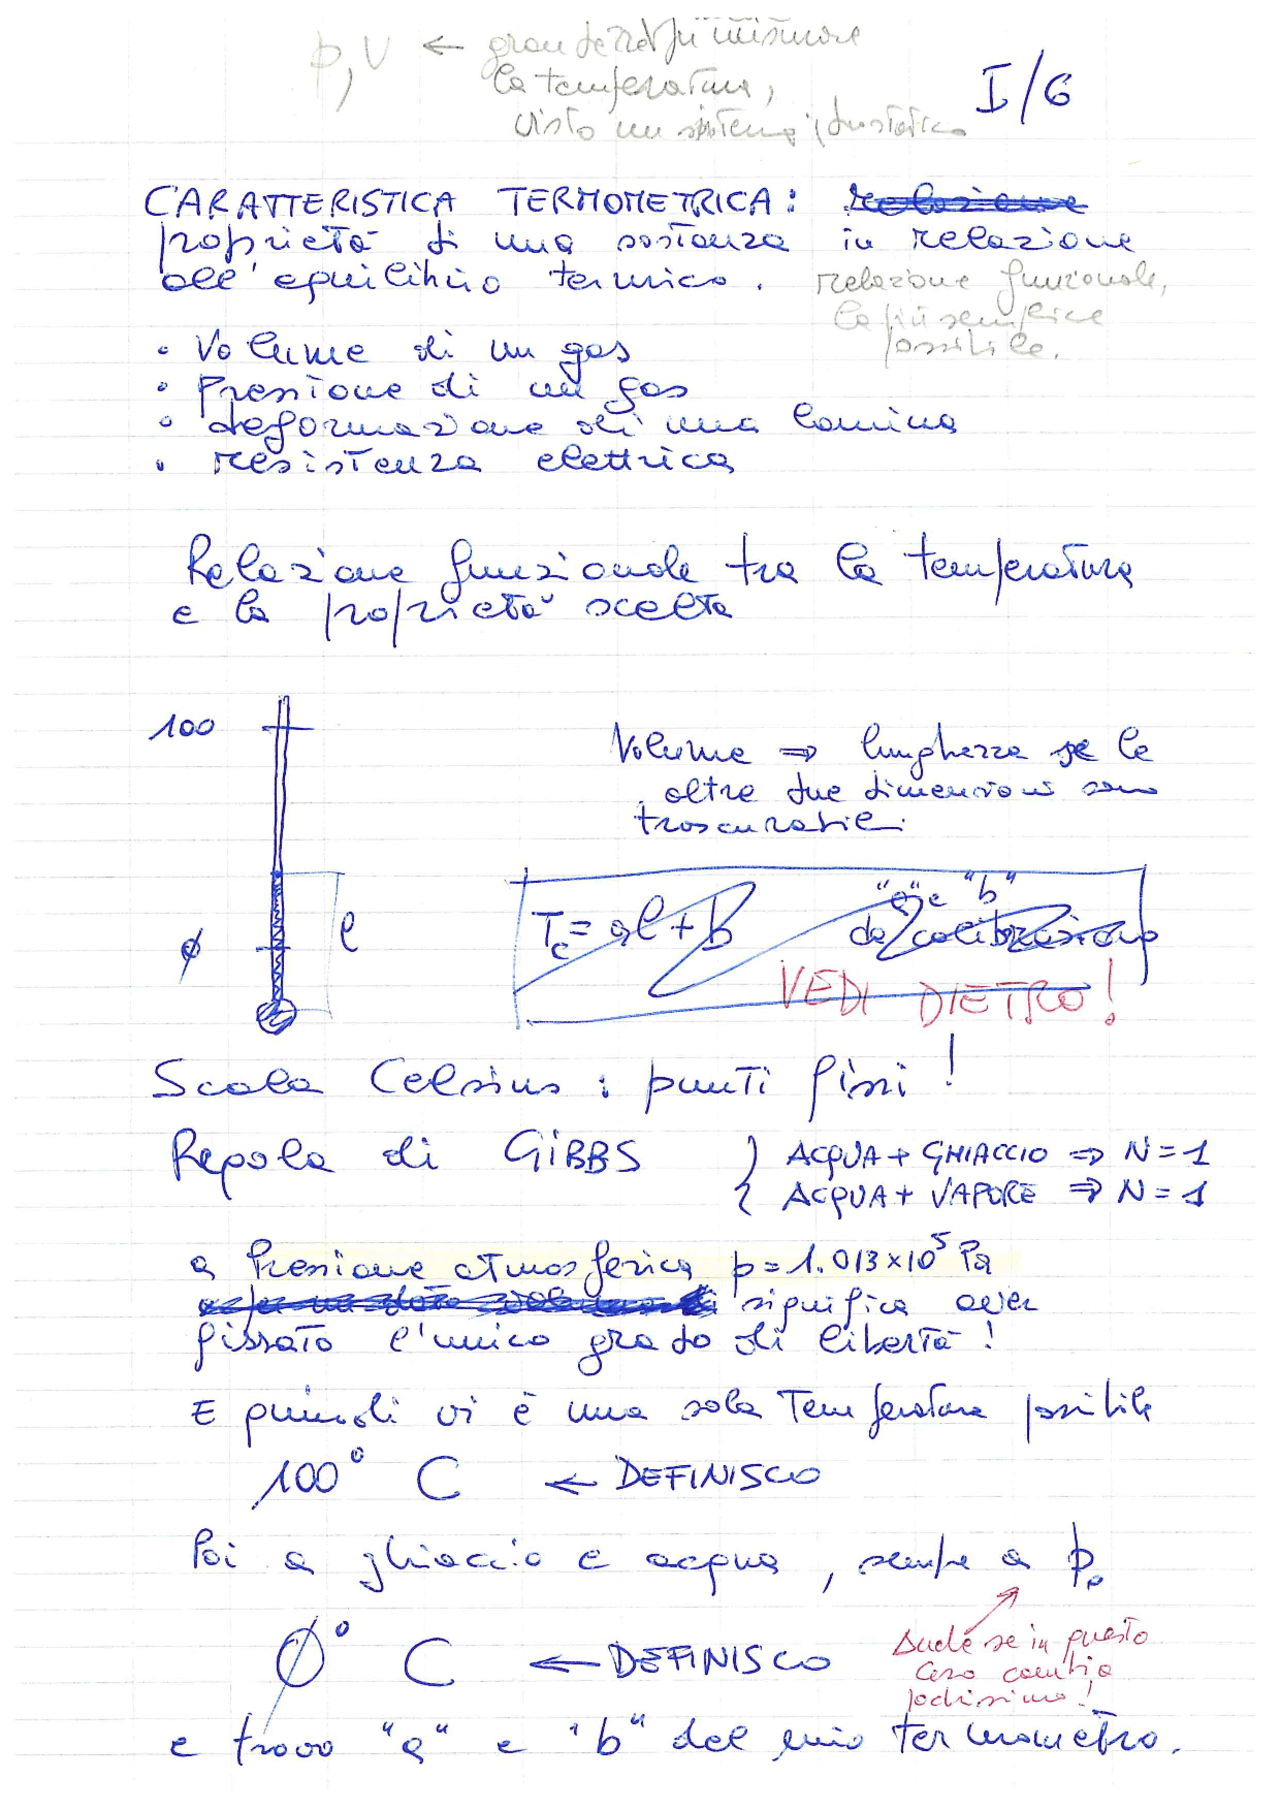 p, V ← grandezze per misurare
la temperatura,
visto un sistema idrostatico
I/6
CARATTERISTICA TERMOMETRICA: relazione
proprietà di una sostanza in relazione
all'equilibrio termico. relazione funzionale,
la più semplice
possibile.
• Volume di un gas
• Pressione di un gas
• deformazione di una lamina
• resistenza elettrica
Relazione funzionale tra la temperatura
e la proprietà scelta
100
Volume ⇒ lunghezza se le
altre due dimensioni sono
trascurabili.
"a" e "b"
T_c = al + b da calibrazione
Ø l
VEDI DIETRO!
Scala Celsius: punti fissi!
Regola di GIBBS } ACQUA + GHIACCIO ⇒ N = 1
{ ACQUA + VAPORE ⇒ N = 1
a Pressione atmosferica p = 1.013×10⁵ Pa
significa aver
fissato l'unico grado di libertà!
E quindi vi è una sola Temperatura possibile
100° C ← DEFINISCO
Poi a ghiaccio e acqua, sempre a p₀
Ø° C ← DEFINISCO
Anche se in questo
caso cambia
pochissimo!
e trovo "a" e "b" del mio termometro.